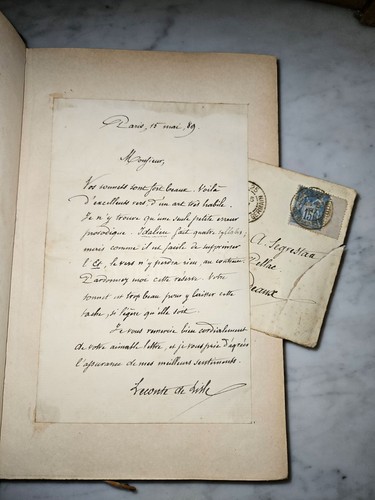 Paris, 15 mai, 89.
Monsieur,
Vos sonnets sont fort beaux. Voilà
d'excellents vers d'un art très habile.
Je n'y trouve qu'une seule petite erreur
prosodique. Idalien fait quatre syllabes,
mais comme il est facile de supprimer
l'Et, le vers n'y perdra rien, au contraire.
Pardonnez moi cette réserve. Votre
sonnet est trop beau pour y laisser cette
tache, si légère qu'elle soit.
Je vous remercie bien cordialement
de votre aimable lettre, et je vous prie d'agréer
l'assurance de mes meilleurs sentiments.
Leconte de Lisle
15
A. Segrestaa
Pellac
eaux